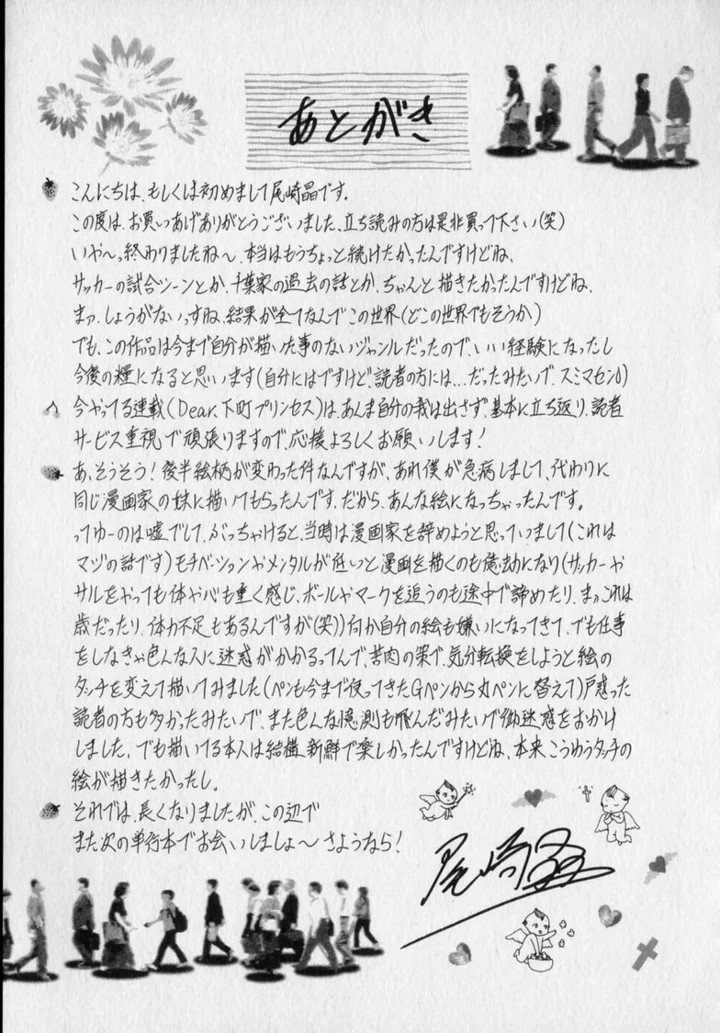 あとがき
こんにちは、もしくは初めまして尾崎晶です。
この度は、お買いあげありがとうございました、立ち読みの方は是非買って下さい(笑)
いや〜っ終わりましたね〜、本当はもうちょっと続けたかったんですけどね、
サッカーの試合シーンとか、千葉家の過去の話とか、ちゃんと描きたかったんですけどね、
まァ、しょうがないっすね、結果が全てなんでこの世界(どこの世界でもそうか)
でも、この作品は今まで自分が描いた事のないジャンルだったので、いい経験になったし
今後の糧になると思います(自分にはですけど、読者の方には…だったみたいで、スミマセン)
今やってる連載(Dear.下町プリンセス)は、あんま自分の我は出さず、基本に立ち返り、読者
サービス重視で頑張りますので、応援よろしくお願いします！
あ、そうそう！後半絵柄が変わった件なんですが、あれ僕が急病しまして、代わりに
同じ漫画家の妹に描いてもらったんです、だから、あんな絵になっちゃったんです。
ってゆーのは嘘でして、ぶっちゃけると、当時は漫画家を辞めようと思っていまして(これは
マジの話です)モチベーションやメンタルが低いっと漫画を描くのも億劫になり(サッカーや
サルをやっても体や心も重く感じ、ボールやマークを追うのも途中で諦めたり、まァこれは
歳だったり、体力不足もあるんですが(笑))何か自分の絵も嫌いになってきて、でも仕事
をしなきゃ色んな人に迷惑がかかるってんで、苦肉の策で、気分転換をしようと絵の
タッチを変えて描いてみました(ペンも今まで使ってきたGペンから丸ペンに替えて)戸惑った
読者の方も多かったみたいで、また色んな憶測も飛んだみたいで御迷惑をおかけ
しました、でも描いてる本人は結構、新鮮で楽しかったんですけどね、本来こうゆうタッチの
絵が描きたかったし。
それでは、長くなりましたが、この辺で
また次の単行本でお会いしましょ〜さようなら！
尾崎晶